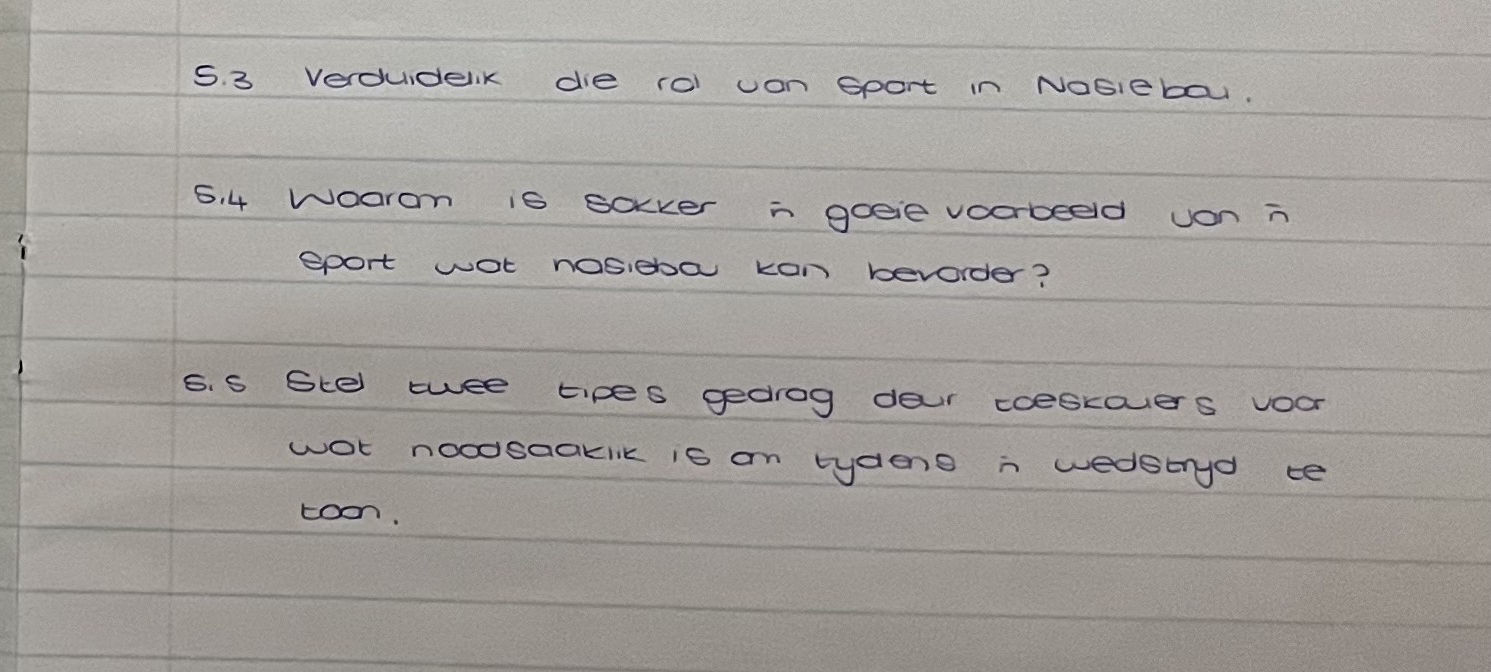 5.3 Verduidelik die rol van sport in Nasiebou.
5.4 Waarom is sokker 'n goeie voorbeeld van 'n
sport wat nasiebou kan bevorder?
5.5 Stel twee tipes gedrag deur toeskouers voor
wat noodsaaklik is om tydens 'n wedstryd te
toon.